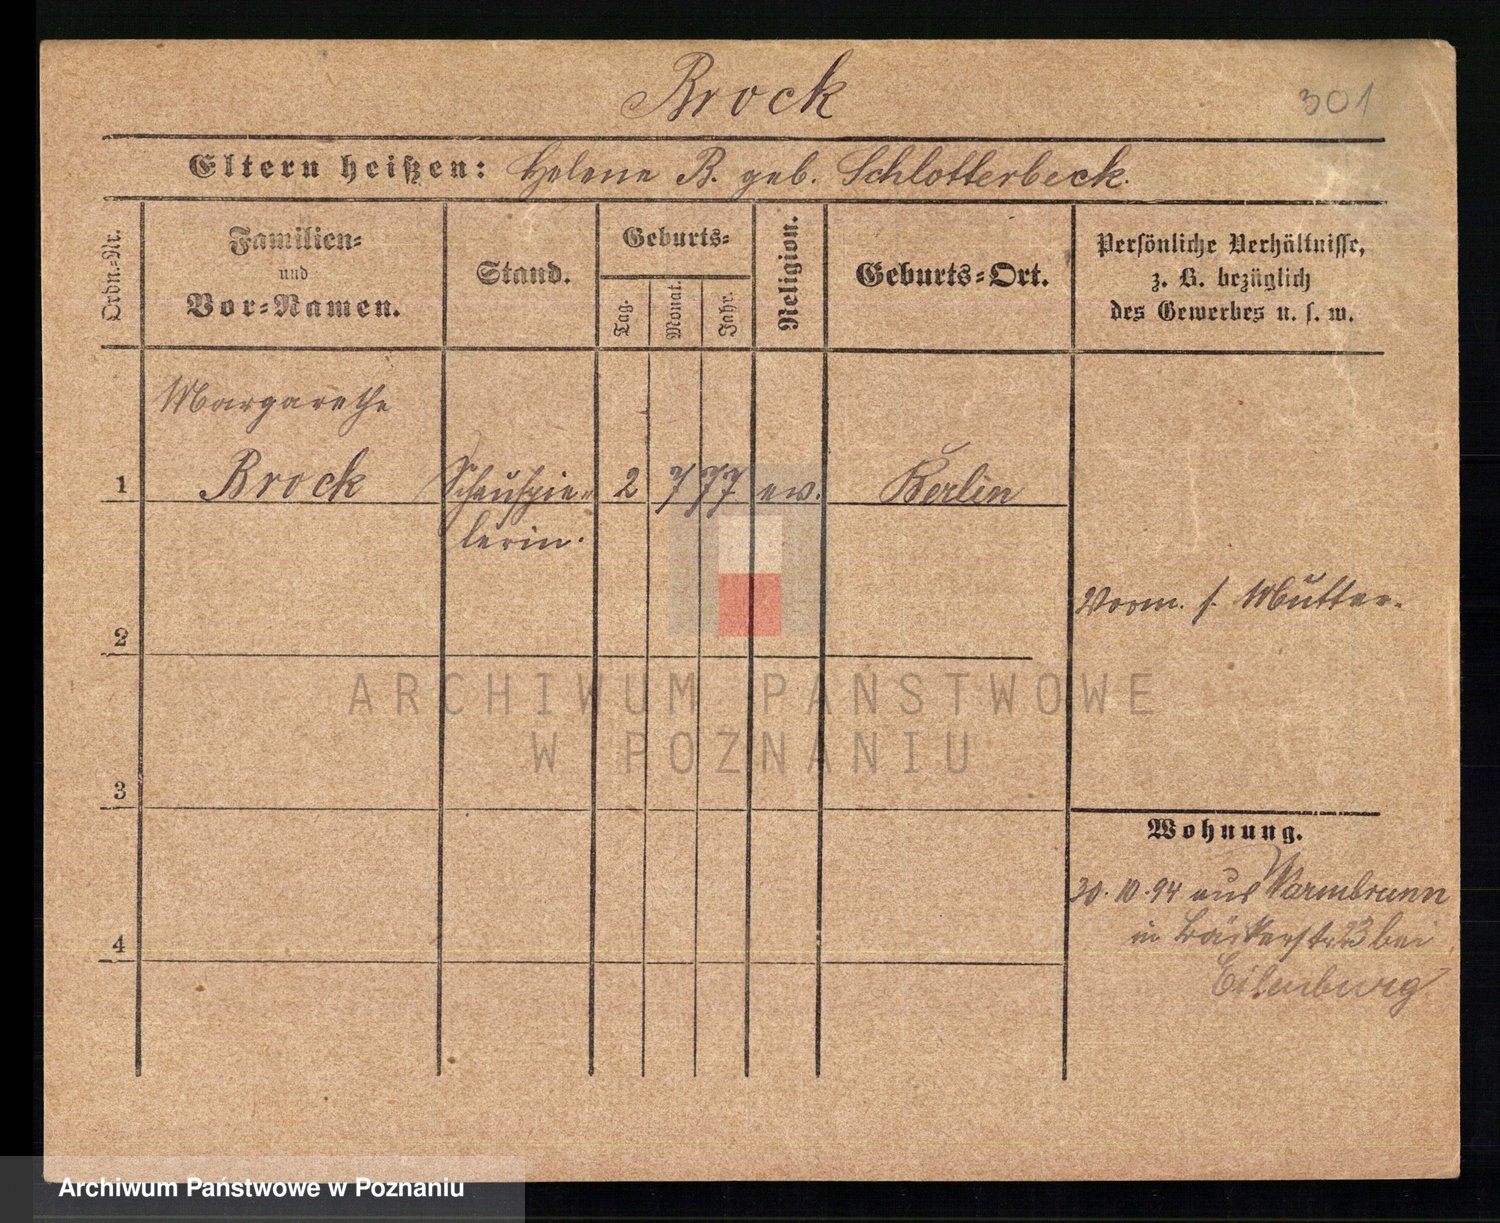 Brock
301
Eltern heißen: Helene B. geb. Schlotterbeck.
Ordn.-Nr.
Familien-
und
Vor-Namen.
Stand.
Geburts-
Tag.
Monat.
Jahr.
Religion.
Geburts-Ort.
Persönliche Verhältnisse,
z. B. bezüglich
des Gewerbes u. s. w.
Margarethe
1 Brock Schauspie- 2 7 77 ev. Berlin
lerin.
Vorm. s. Mutter.
2
3
Wohnung.
30.10.94 aus Warmbrunn
in Bäckerstr. 23 bei
4
Eilenburg
ARCHIWUM PAŃSTWOWE
W POZNANIU
Archiwum Państwowe w Poznaniu